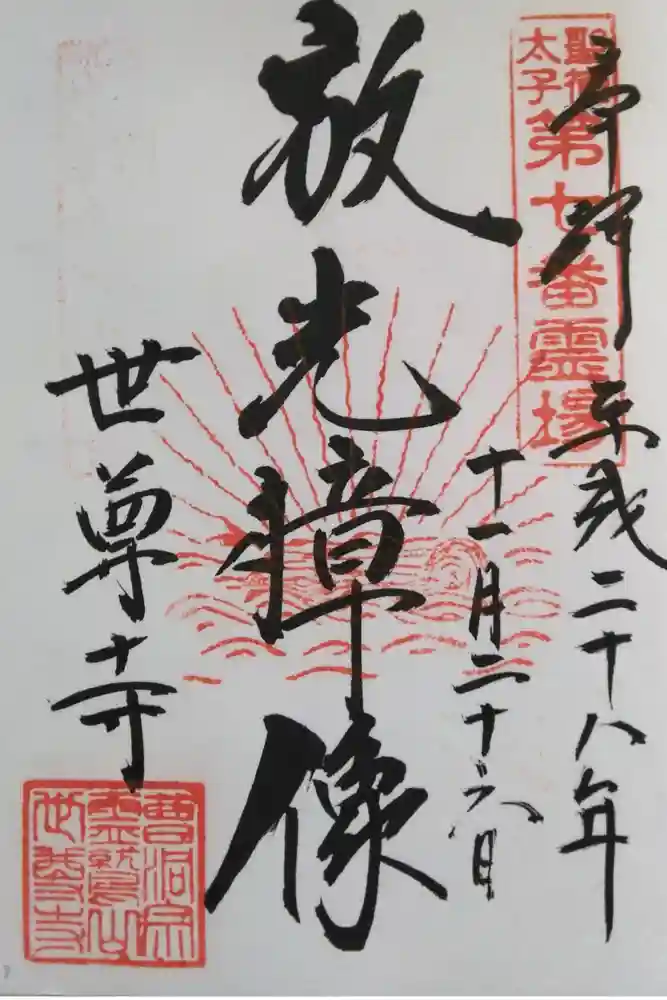 奉拝
平成二十八年
十一月二十六日
聖徳
太子
第七番霊場
放光樟像
世尊寺
曹洞宗
霊鷲山
世尊寺